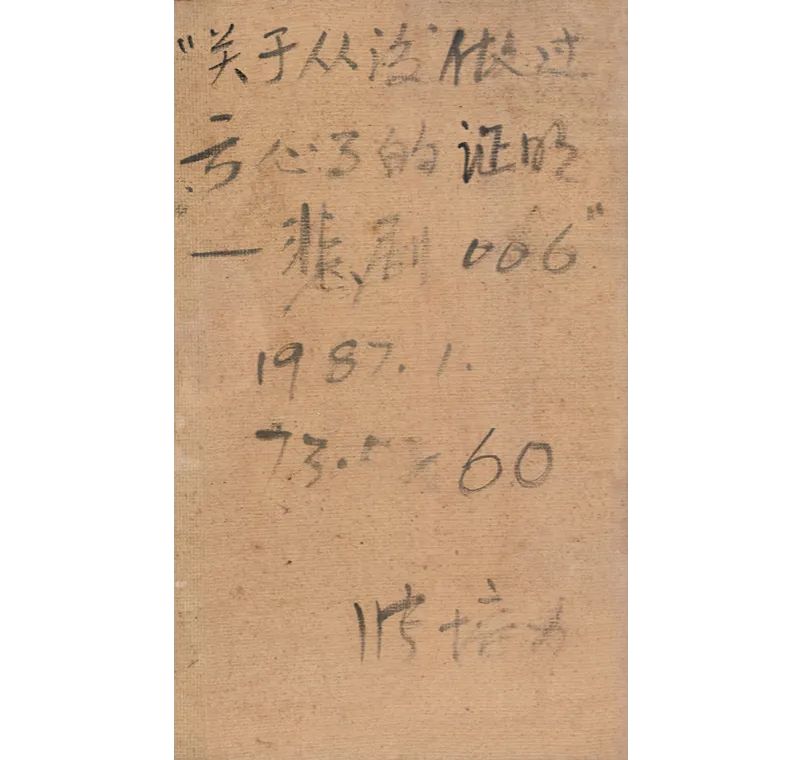 "关于从没做过
亏心的证明
—悲剧 006"
1987.1.
73.5x60
张培力